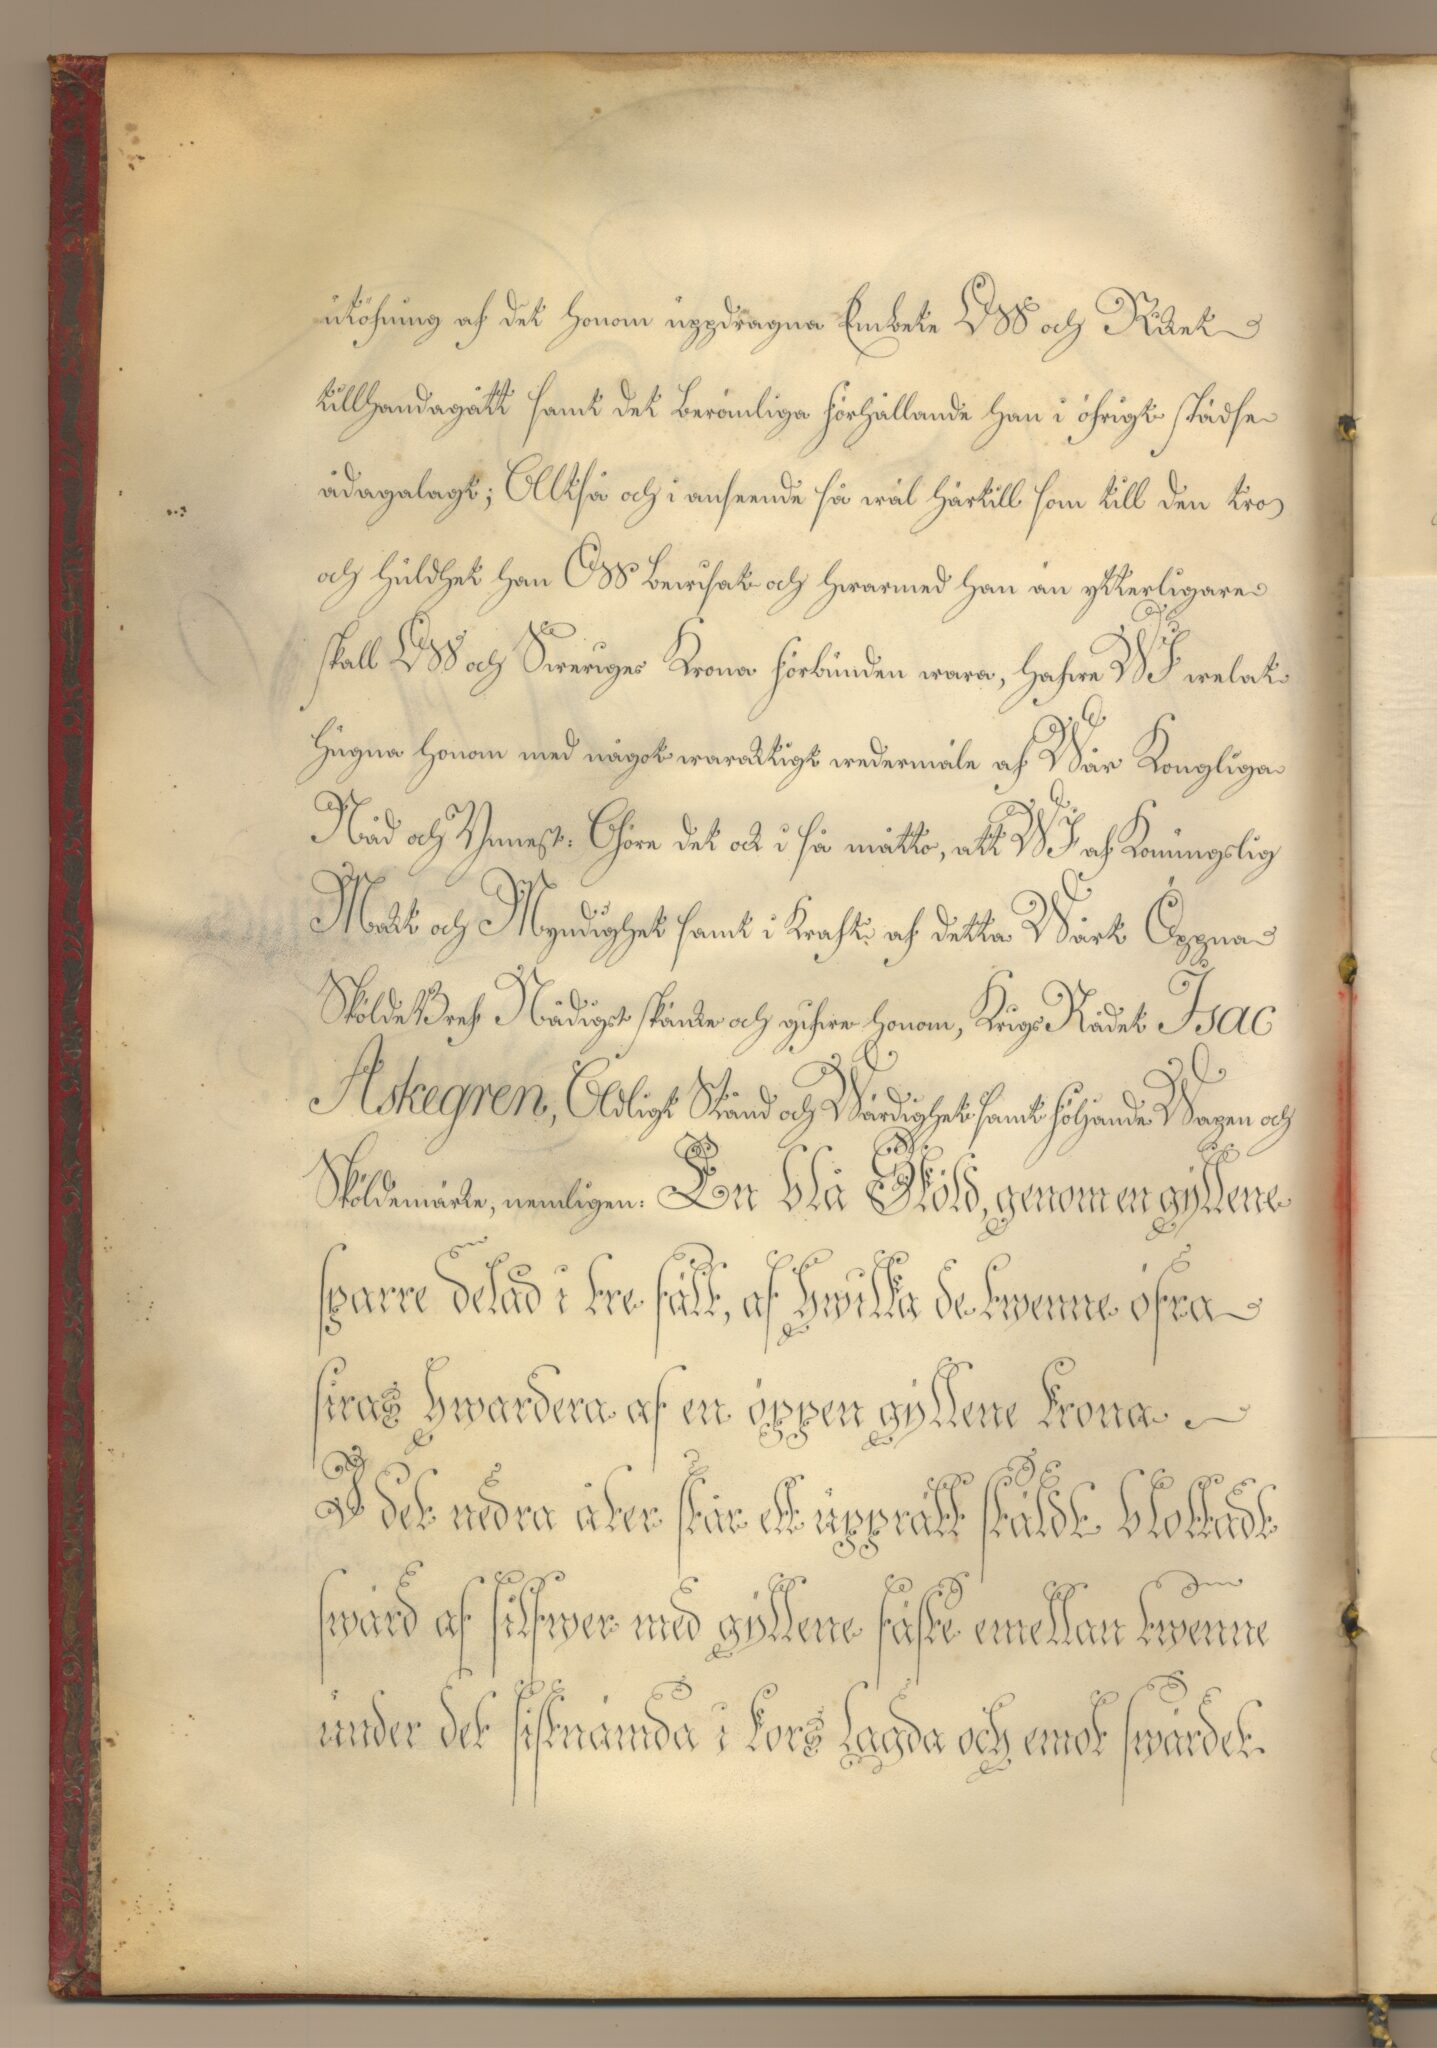 utöfning af det honom uppdragna Embete OSS och Riket
tillhandagått samt det berömliga förhållande han i öfrigt städse
ådagalagt; Alltså och i anseende så wäl härtill som till den tro
och huldhet han OSS bewisat och hwarmed han än ytterligare
skall OSS och Sweriges Krona förbunden wara, hafwe WJ welat
hugna honom med något waraktigt wedermäle af Wår Kongliga
Nåd och Ynnest: Göre det ock i så måtto, att WJ af Konungslig
Makt och Myndighet samt i Kraft af detta Wårt Öppna
Sköldebref Nådigst skänke och gifwe honom, KrigsRådet Isac
Askegren, Adligt Stånd och Wärdighet samt följande Wapen och
Sköldemärke, nemligen: En blå Sköld, genom en gyllene
sparre delad i tre fält, af hwilka de twenne öfra
siras hwardera af en öppen gyllene krona
I det nedra åter står ett upprätt stäldt blottadt
swärd af silfwer med gyllene fäste emellan twenne
under det sistnämda i kors lagda och emot swärdet